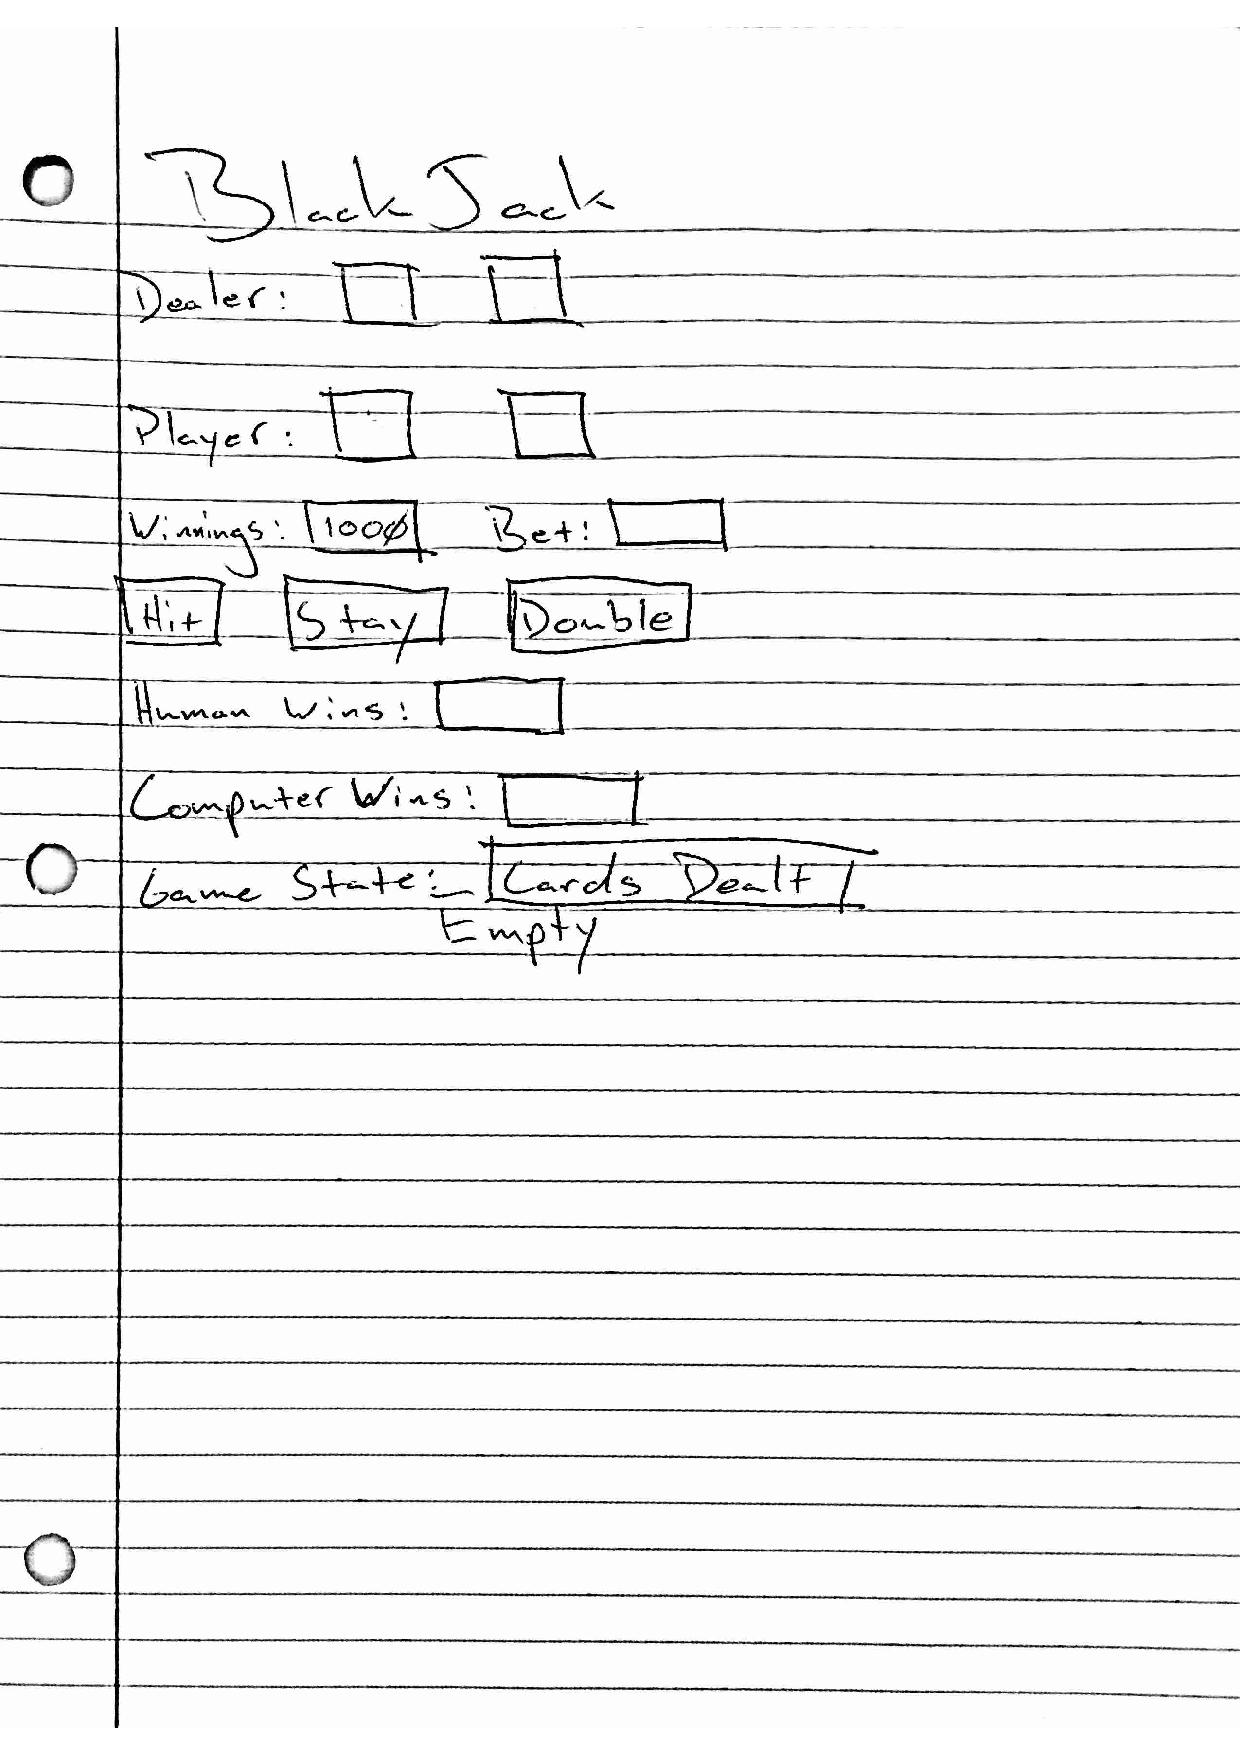 Black Jack
Dealer:
Player:
Winnings: 1000 Bet:
Hit Stay Double
Human Wins:
Computer Wins:
Game State: Cards Dealt
Empty